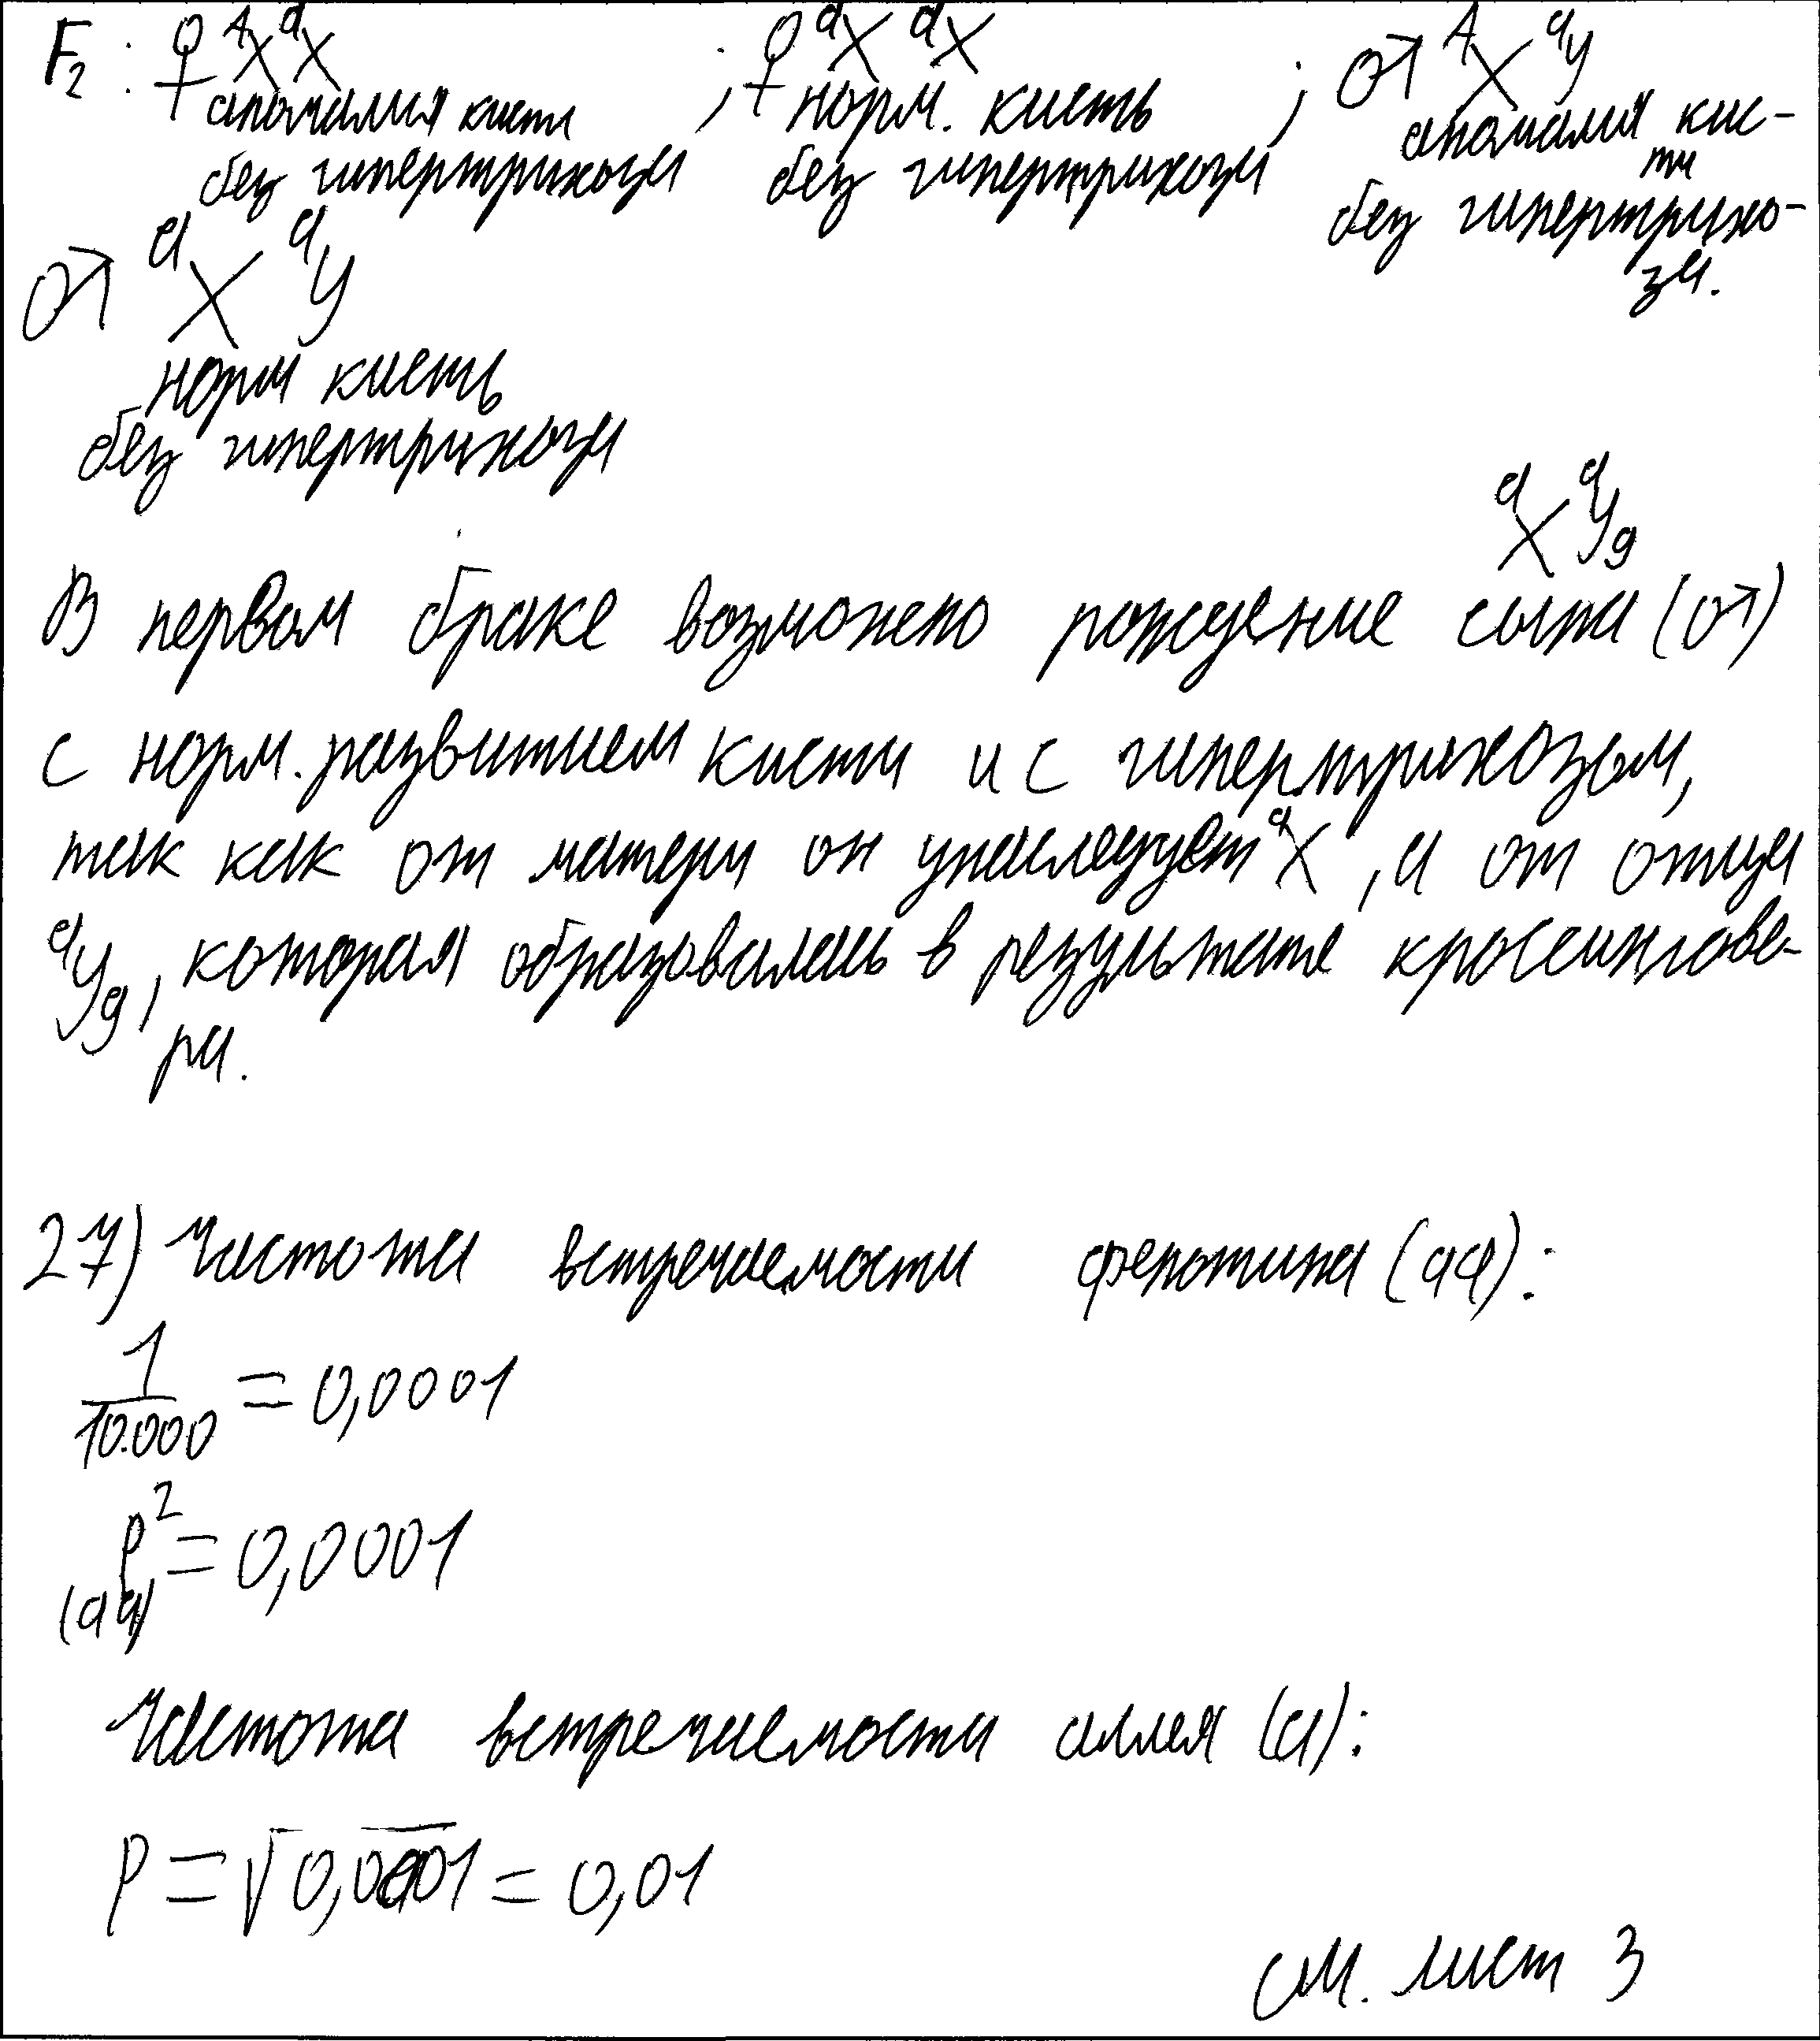 F₂: ♀ ᴬXᵃX ; ♀ ᵃX ᵃX ; ♂ ᴬX ᵃY
аномалия кисти норм. кисть аномалия кис-
ти
без гипертрихоза без гипертрихоза без гипертрихо-
за.
♂ ᵃX ᵃY
норм кисть
без гипертрихоза
ᵃXᵃYg
В первом браке возможно рождение сына (♂)
с норм. развитием кисти и с гипертрихозом,
так как от матери он унаследует ᵃX, а от отца
ᵃYg, которая образовалась в результате кроссингове-
ра.
27) Частота встречаемости фенотипа (аа):
1/10.000 = 0,0001
p² = 0,0001
(аа)
Частота встречаемости аллея (а):
p = √0,0001 = 0,01
см. лист 3